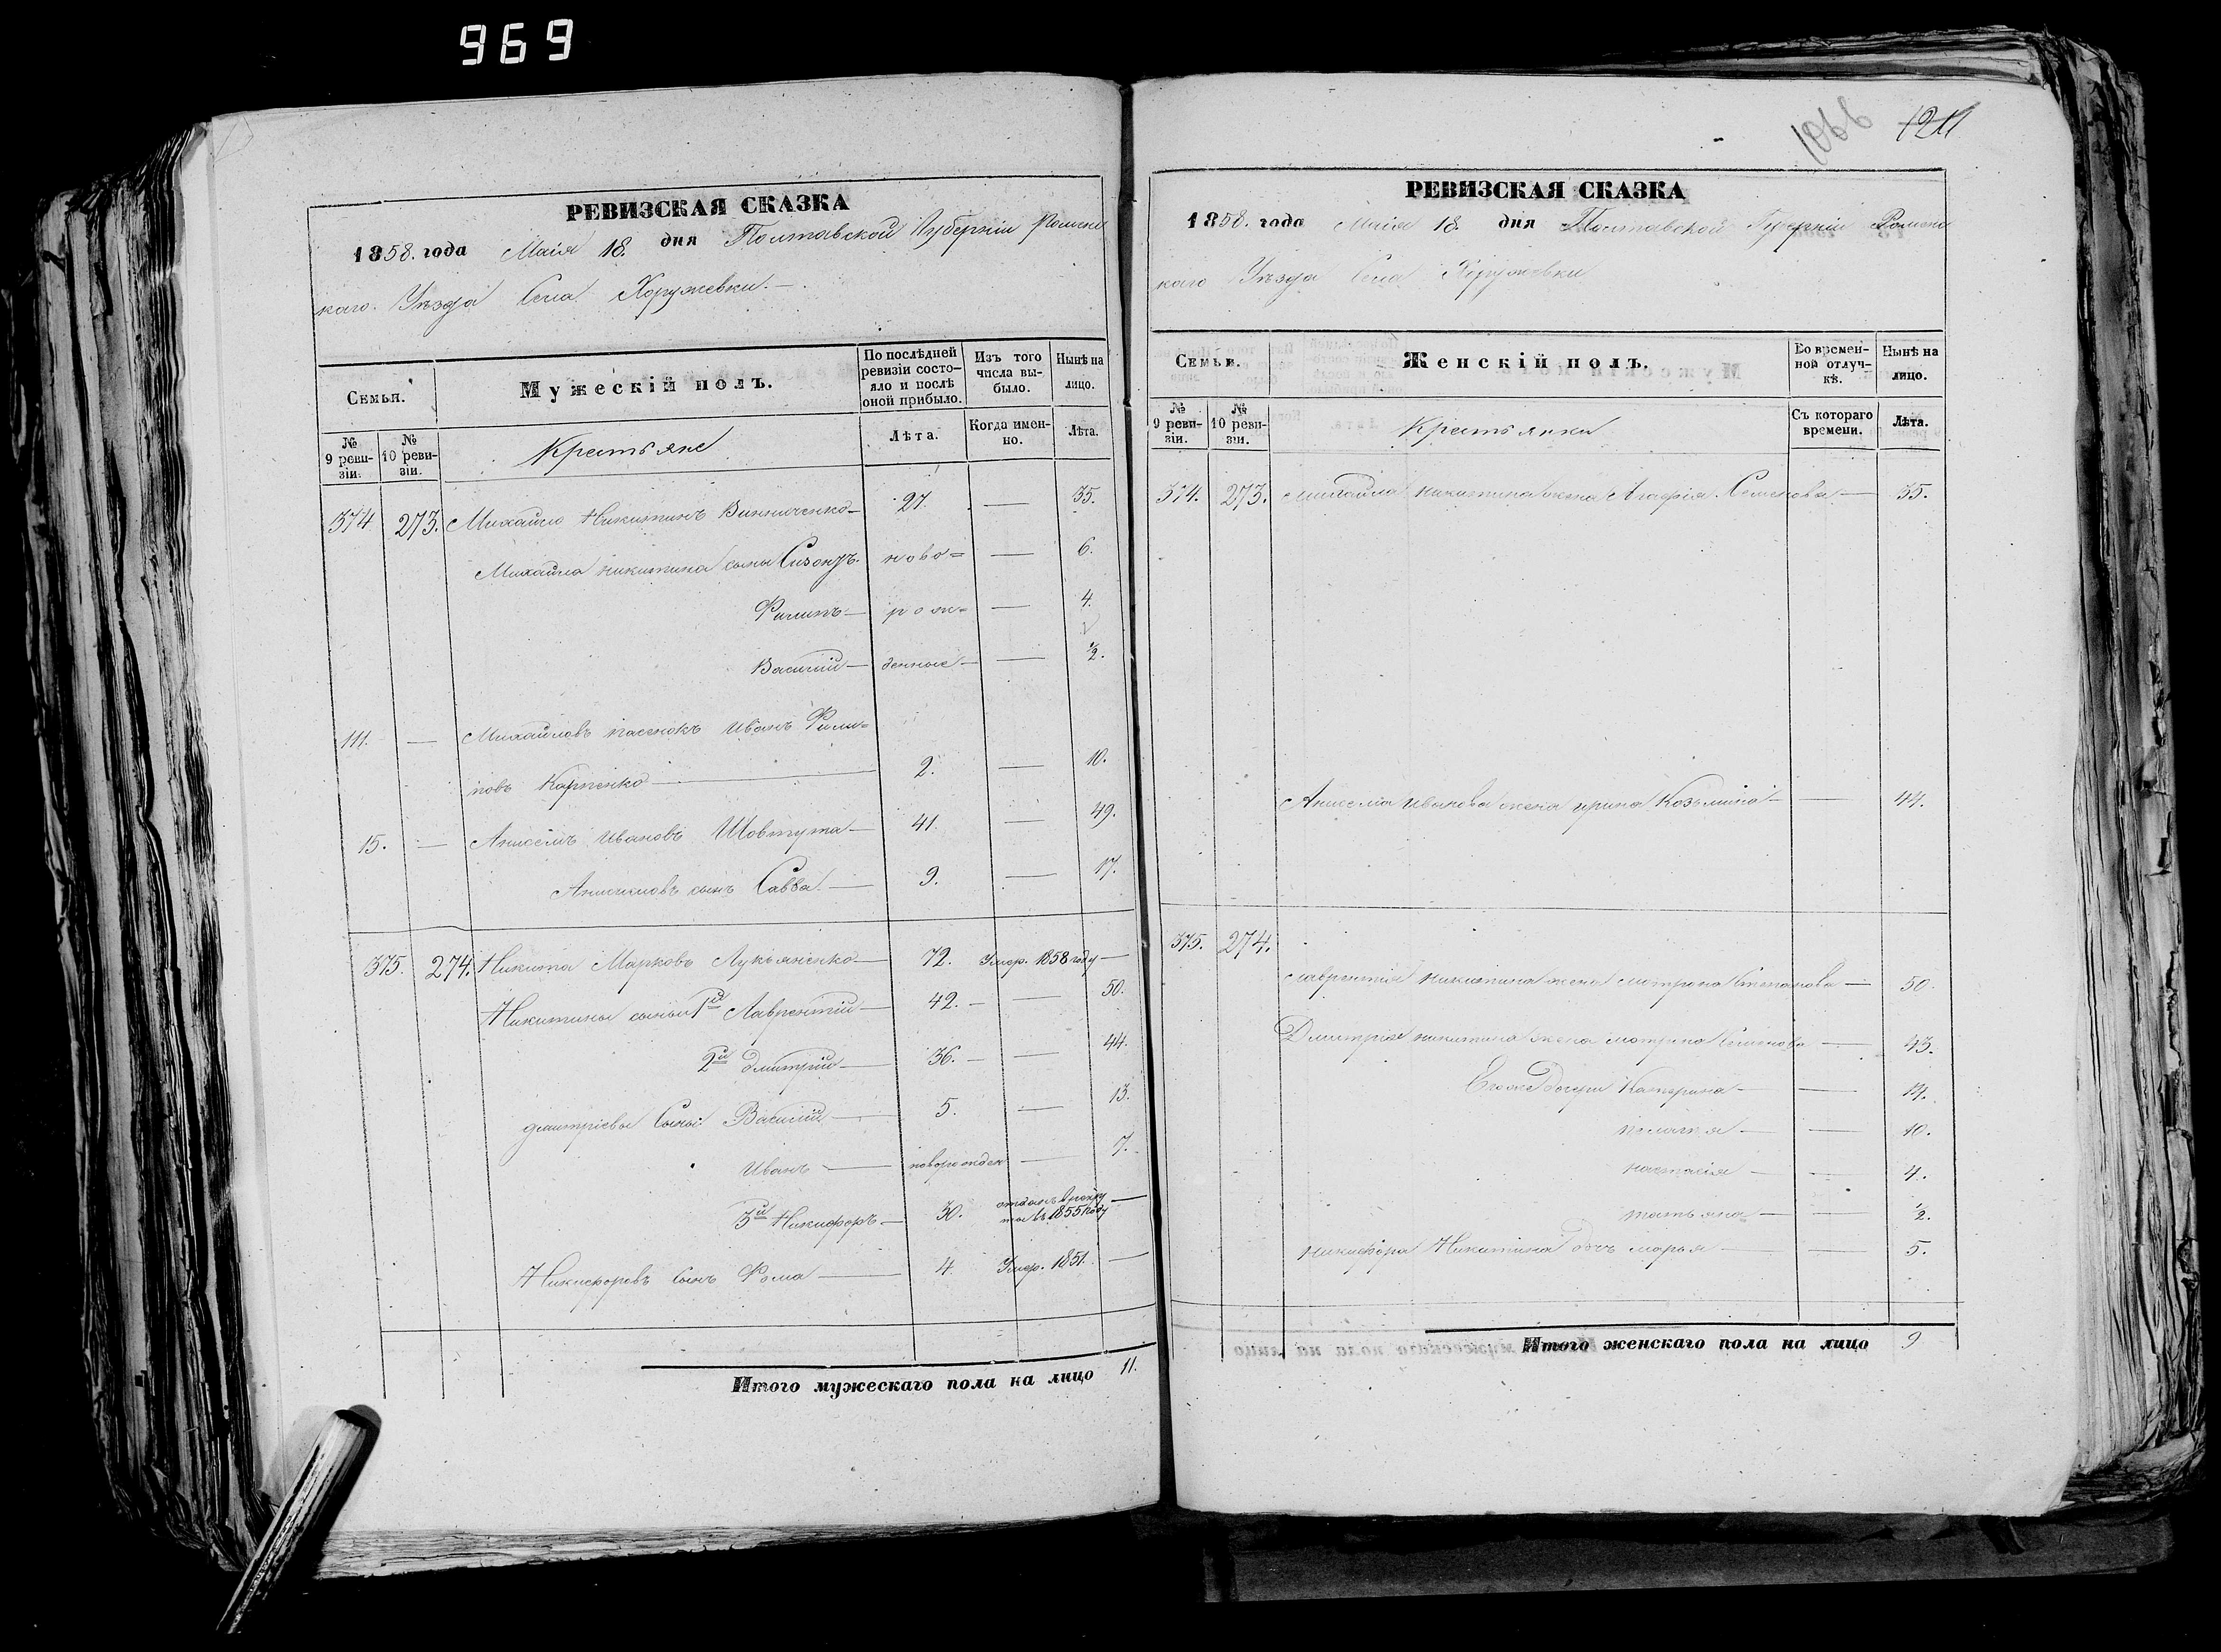 969
РЕВИЗСКАЯ СКАЗКА
1858. года Маія 18. дня Полтавской Губерніи Роменс
каго. Уѣзда Села Хоружевки.
Семьи.
Мужескій полъ.
По послѣдней ревизіи состо-яло и послѣ оной прибыло.
Изъ того числа вы-было.
Нынѣ на лицо.
№ 9 реви-зіи.
№ 10 реви-зіи.
Крестьяне
Лѣта.
Когда имен-но.
Лѣта.
374 273. Михайло Никитинъ Винниченко — 27. — 35.
Михайла никитина сыны Сизонъ. ново= — 6.
Филипъ — рож= — 4.
Василий — денные — — 1/2.
111. — Михайловъ пасенокъ иванъ Фили=
повъ Карпенко — 2. — 10.
15. — Анисимъ ивановъ Шовтута — 41. — 49.
Анисимовъ сынъ Савва. — 9. — 17.
375. 274. Никита Марковъ Лукьяненко — 72. Умер. 1858 году —
Никитины сыны 1й Лаврентій — 42. — — 50.
2й дмитрій — 36. — — 44.
дмитріевы Сыны: Василій — 5. — 13.
иванъ — новорожден — 7.
3й Никифоръ — 30. отданъ в рекру
ты въ 1855 году —
Никифоровъ сынъ Фома — 4. Умер. 1851. —
Итого мужескаго пола на лицо 11.
1066 1211
РЕВИЗСКАЯ СКАЗКА
1858. года Маія 18. дня Полтавской Губерніи Роменс
каго Уѣзда Села Хоружевки
Семьи.
Женскій полъ.
Во времен-ной отлуч-кѣ.
Нынѣ на лицо.
№ 9 реви-зіи.
№ 10 реви-зіи.
Крестьянки
Съ котораго времени.
Лѣта.
374. 273. Михайла никитина жена Агафія Семенова — 35.
Анисима иванова жена ирина Козьмина — — 44.
375. 274.
лаврентія никитина жена мотрона Степанова — 50.
Дмитрія никитина жена мотрина Семенова — 43.
Егоже дочери Катерина — — 14.
пелагея — — 10.
настасія — — 4.
татьяна — — 1/2.
никифора Никитина дочь марья — — 5.
Итого женскаго пола на лицо 9